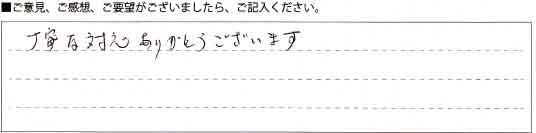 ■ご意見、ご感想、ご要望がございましたら、ご記入ください。
丁寧な対応ありがとうございます